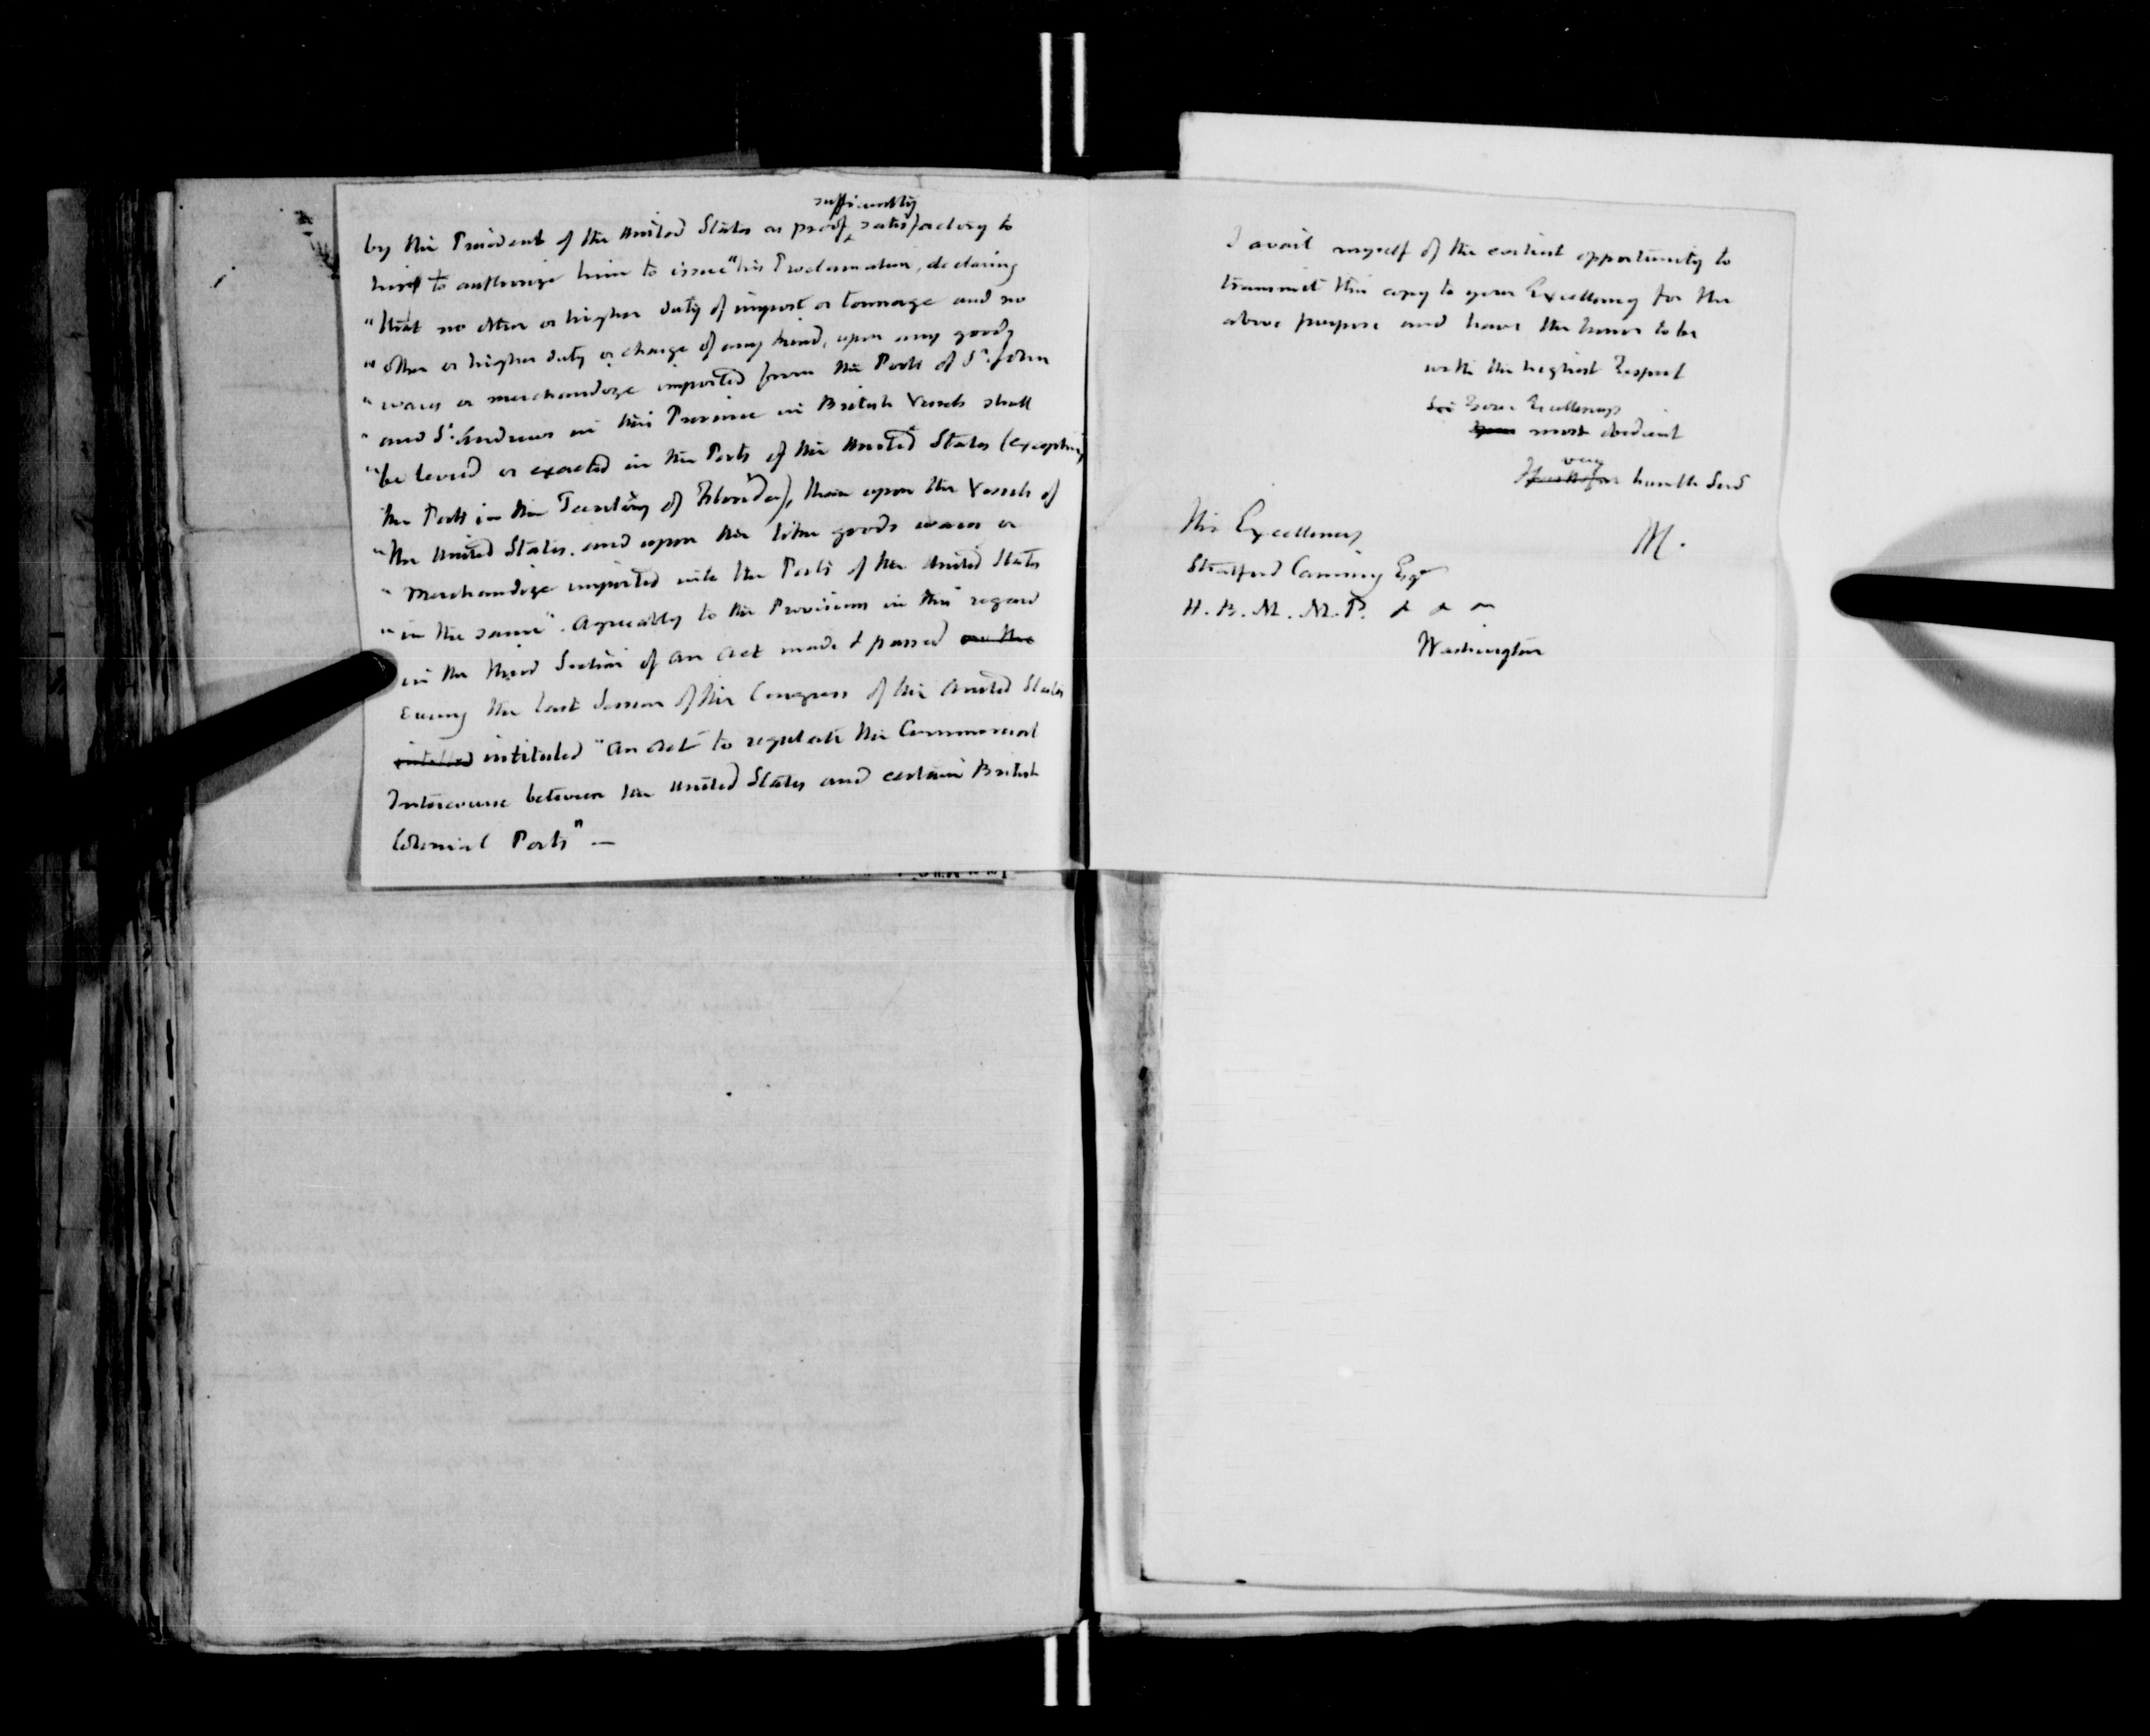 by the President of the United States as proof sufficiently satisfactory to
him to authorize him to issue "his Proclamation, declaring
"that no other or higher duty of import or tonnage and no
"other or higher duty or charge of any kind, upon any goods
"wares or merchandize imported from the Ports of St. John
"and St. Andrews in this Province in British Vessels shall
"be levied or exacted in the Ports of the United States (excepting
the Ports in the Territory of Florida), than upon the Vessels of
"the United States. and upon the like goods wares or
"Merchandize imported into the Ports of the United States
"in the same". Agreeably to the Provisions in this regard
in the third Section of an Act made & passed on the
the last Session of the Congress of the United States
intitled intituled "An Act to regulate the Commercial
Intercourse between the United States and certain British
Colonial Ports" —
I avail myself of the earliest opportunity to
transmit this copy to your Excellency for the
above purpose and have the honor to be
with the highest Respect
Your Excellencys
most obedient
very humble Serv
M.
His Excellency
Stratford Canning Esqr
H. B. M. M. P.
Washington